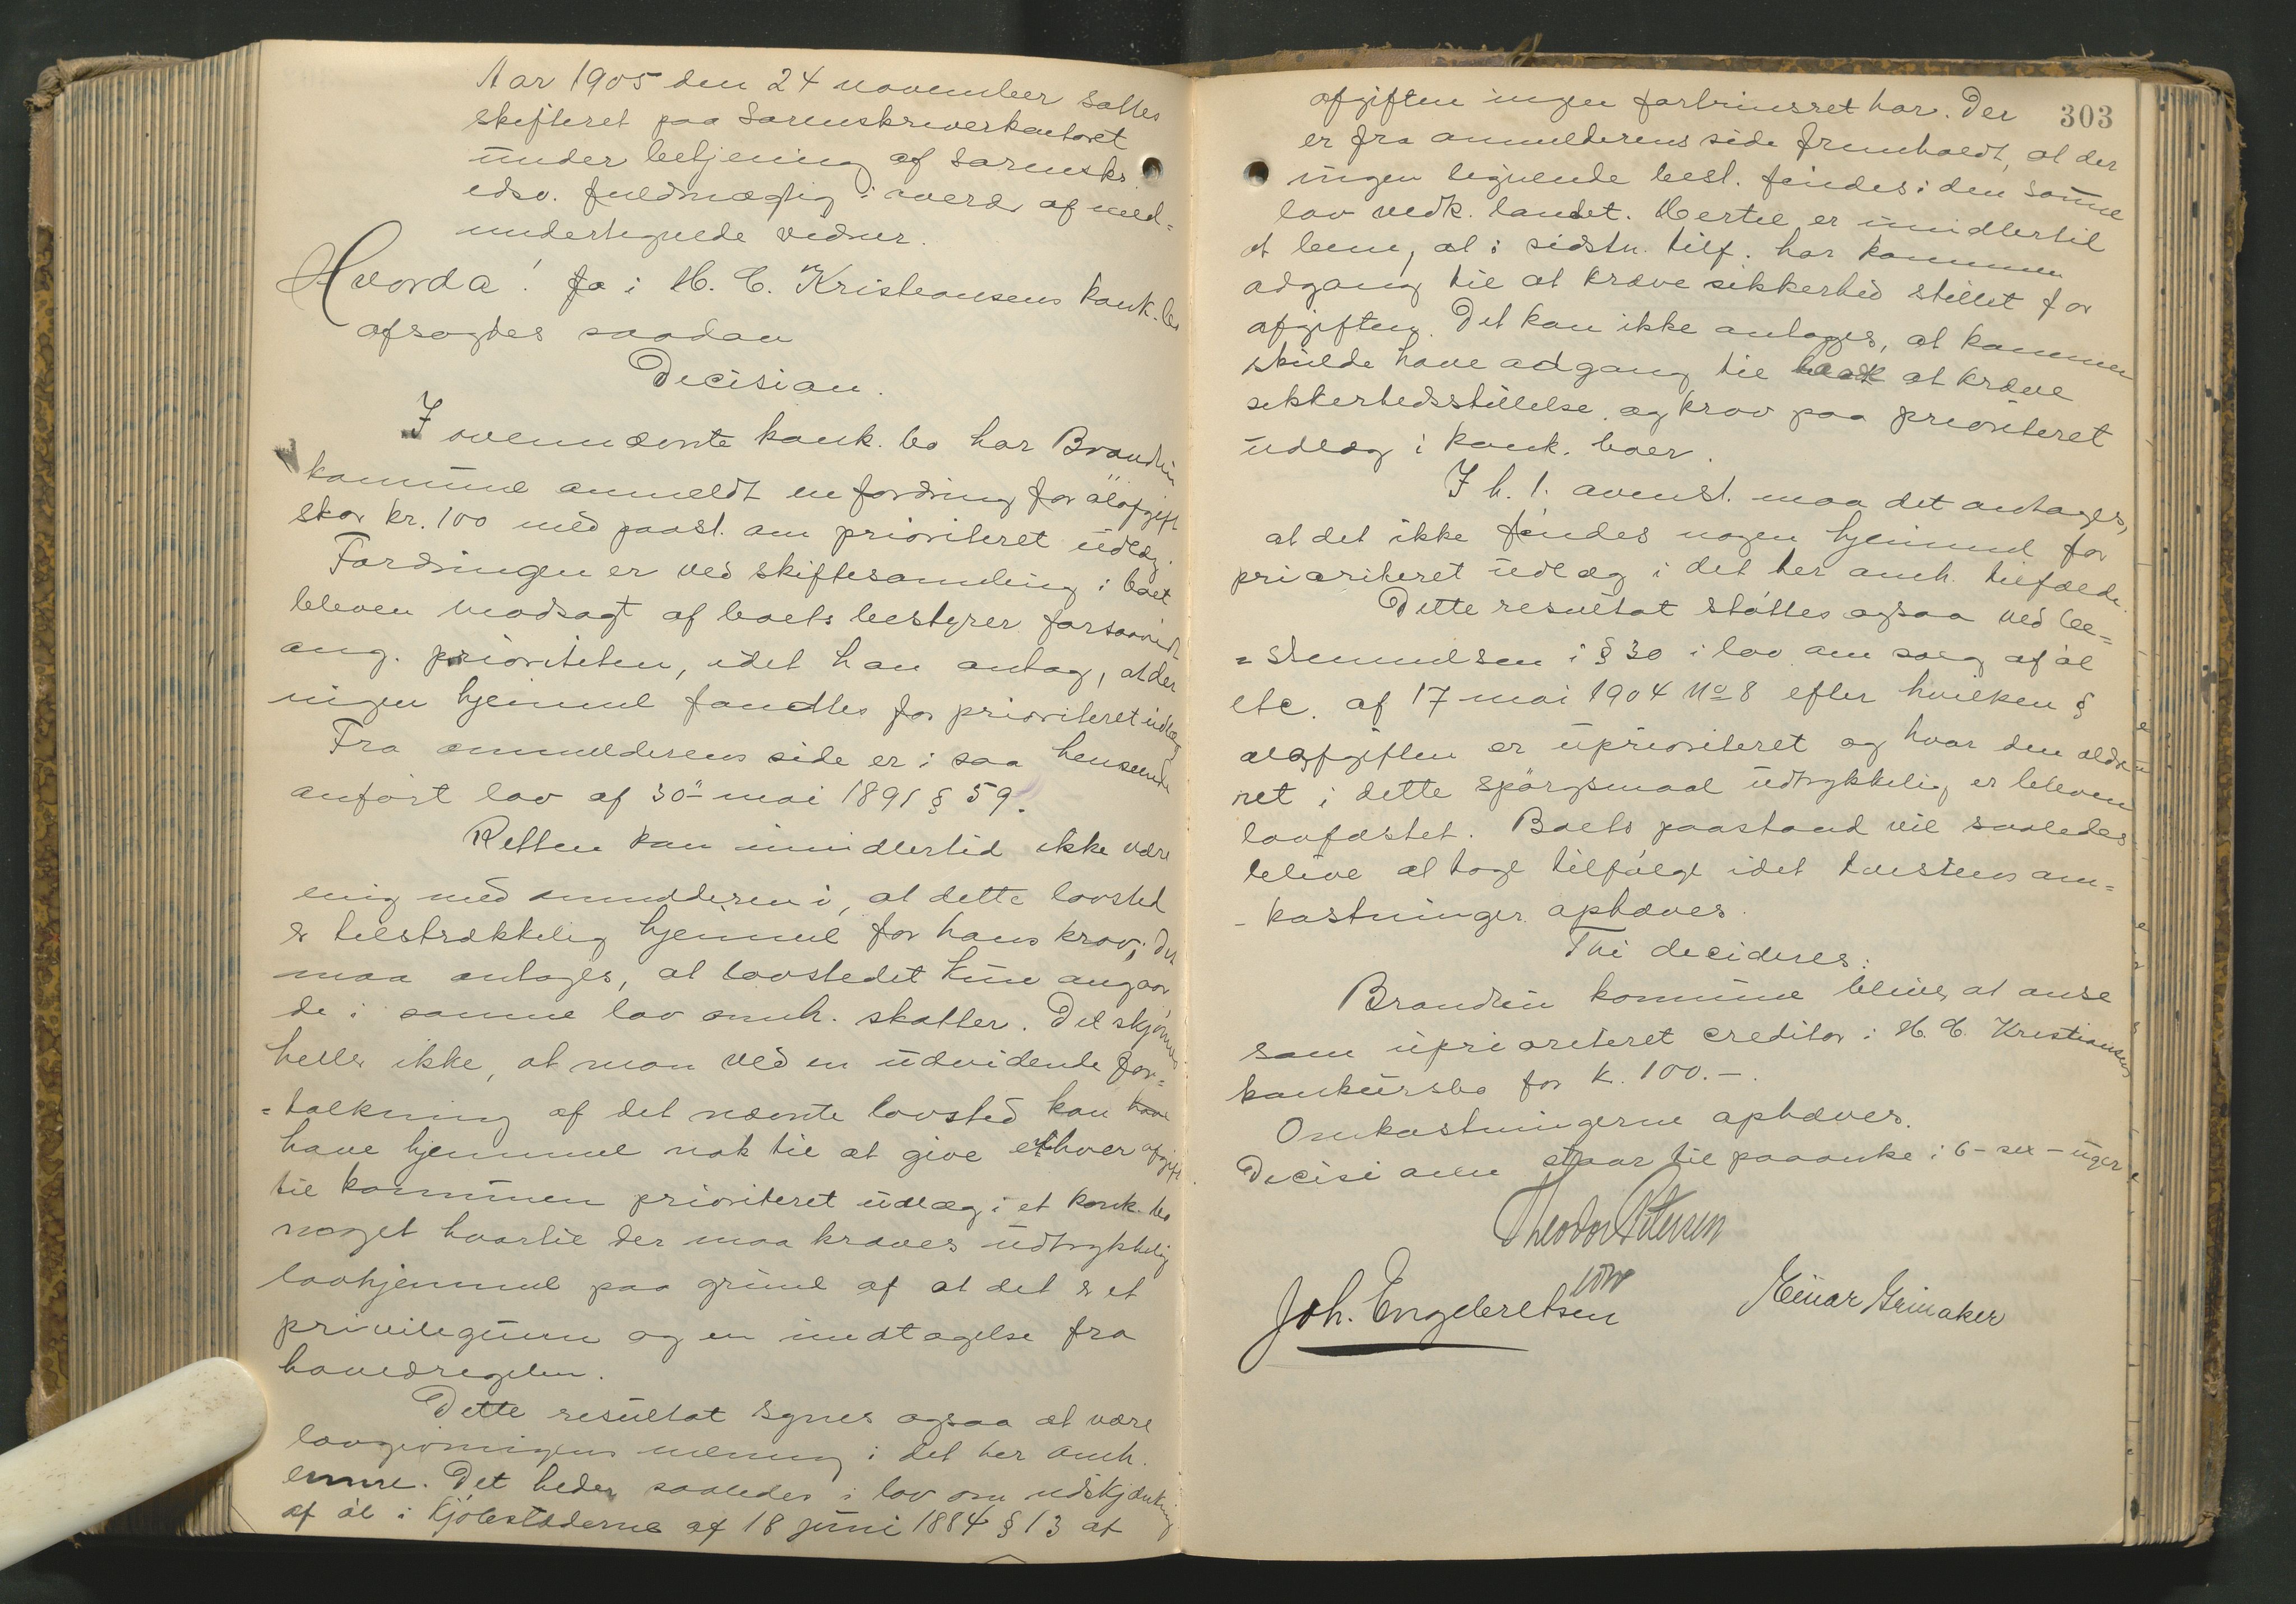 Aar 1905 den 24 november sattes
skifteret paa Sorenskriverkontoret
under betjening af Sorenskr.
edsv. fuldmægtig i overv. af med-
undertegnede vidner.
Hvorda! Fa i H. C. Kristiansens konk. bo
afsagdes saadan
Decision.
I ovennævnte konk. bo har Brandbu
kommune anmeldt en fordring for ølafgift
stor kr. 100 med paast. om prioriteret udlæg.
Fordringen er ved skiftesamling i boet
bleven modsagt af boets bestyrer forsaavidt
ang. prioriteten, idet han antog, at der
ingen hjemmel fandtes for prioriteret udlæg
Fra anmelderens side er i saa henseende
anført lov af 30 mai 1891 § 59.
Retten kan imidlertid ikke være
enig med anmelderen i, at dette lovsted
er tilstrækkelig hjemmel for hans krav; det
maa antages, at lovstedet kun angaar
de i samme lov omh. skatter. Det skjønnes
heller ikke, at man ved en udvidende for-
=tolkning af det nævnte lovsted kan have
have hjemmel nok til at give ethver afgift
til kommunen prioriteret udlæg i et konk. bo
noget hvortil der maa kræves udtrykkelig
lovhjemmel paa grund af at det er et
privilegium og en undtagelse fra
hovedregelen.
Dette resultat synes ogsaa at være
lovgivningens mening i det her omh.
emne. Det heder saaledes i lov om udskjænkning
af øl i Kjøbstæderne af 18 juni 1884 § 13 at
303
afgiften ingen fortrinsret har. Der
er fra anmelderens side fremholdt, at der
ingen lignende best. findes i den samme
lov vedk. landet. Hertil er imidlertid
at bem, at i sidstn. tilf. har kommunen
adgang til at kræve sikkerhed stillet for
afgiften. Det kan ikke antages, at kommunen
skulde have adgang til at kræve
sikkerhedsstillelse og krav paa prioriteret
udlæg i konk. boer.
I h. t. ovenst. maa det antages,
at det ikke findes nogen hjemmel for
prioriteret udlæg i det her omh. tilfælde.
Dette resultat støttes ogsaa ved be-
=stemmelsen i § 30 i lov om salg af øl
etc. af 17 mai 1904 No 8 efter hvilken §
ølafgiften er uprioriteret og hvor den ældre
ret i dette spørgsmaal udtrykkelig er bleven
lovfæstet. Boets paastand vil saaledes
blive at tage tilfølge idet tvistens om-
-kostninger ophæves.
Thi decideres:
Brandbu kommune bliver at anse
som uprioriteret creditor i H. C. Kristiansens
konkursbo for k. 100.-.
Omkostningerne ophæves.
Decisionen staar til paaanke i 6 - sex - uger
Theodor Petersen
Joh. Engebretsen
Einar Grinaker